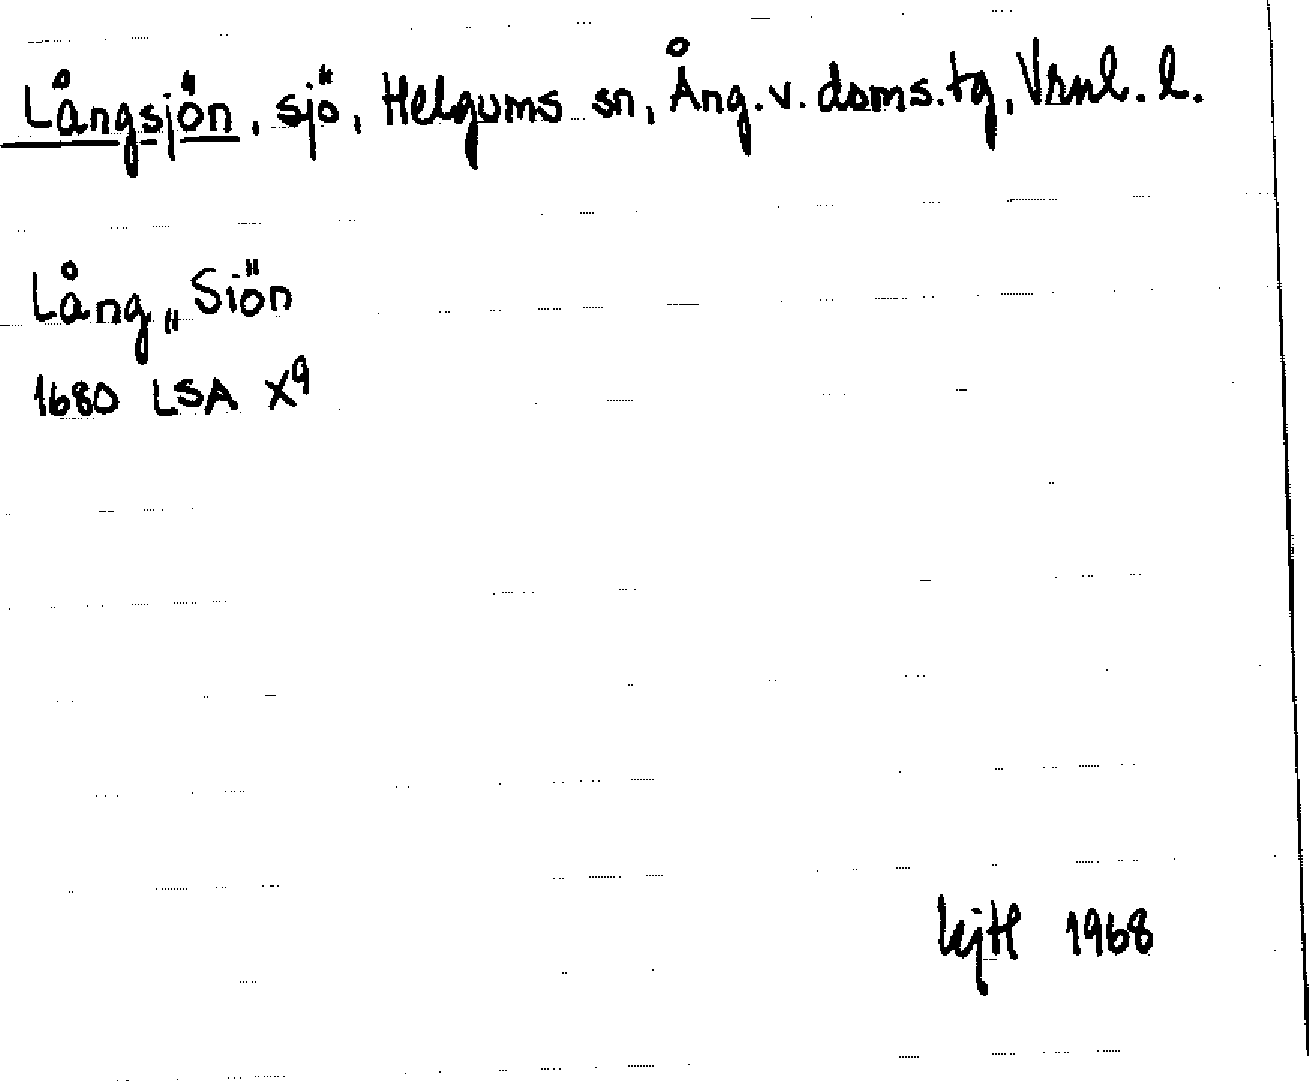 Långsjön, sjö, Helgums sn, Ång.v. doms.tg, Vrnl. l.
Lång„ Siön
1680 LSA X9
1968